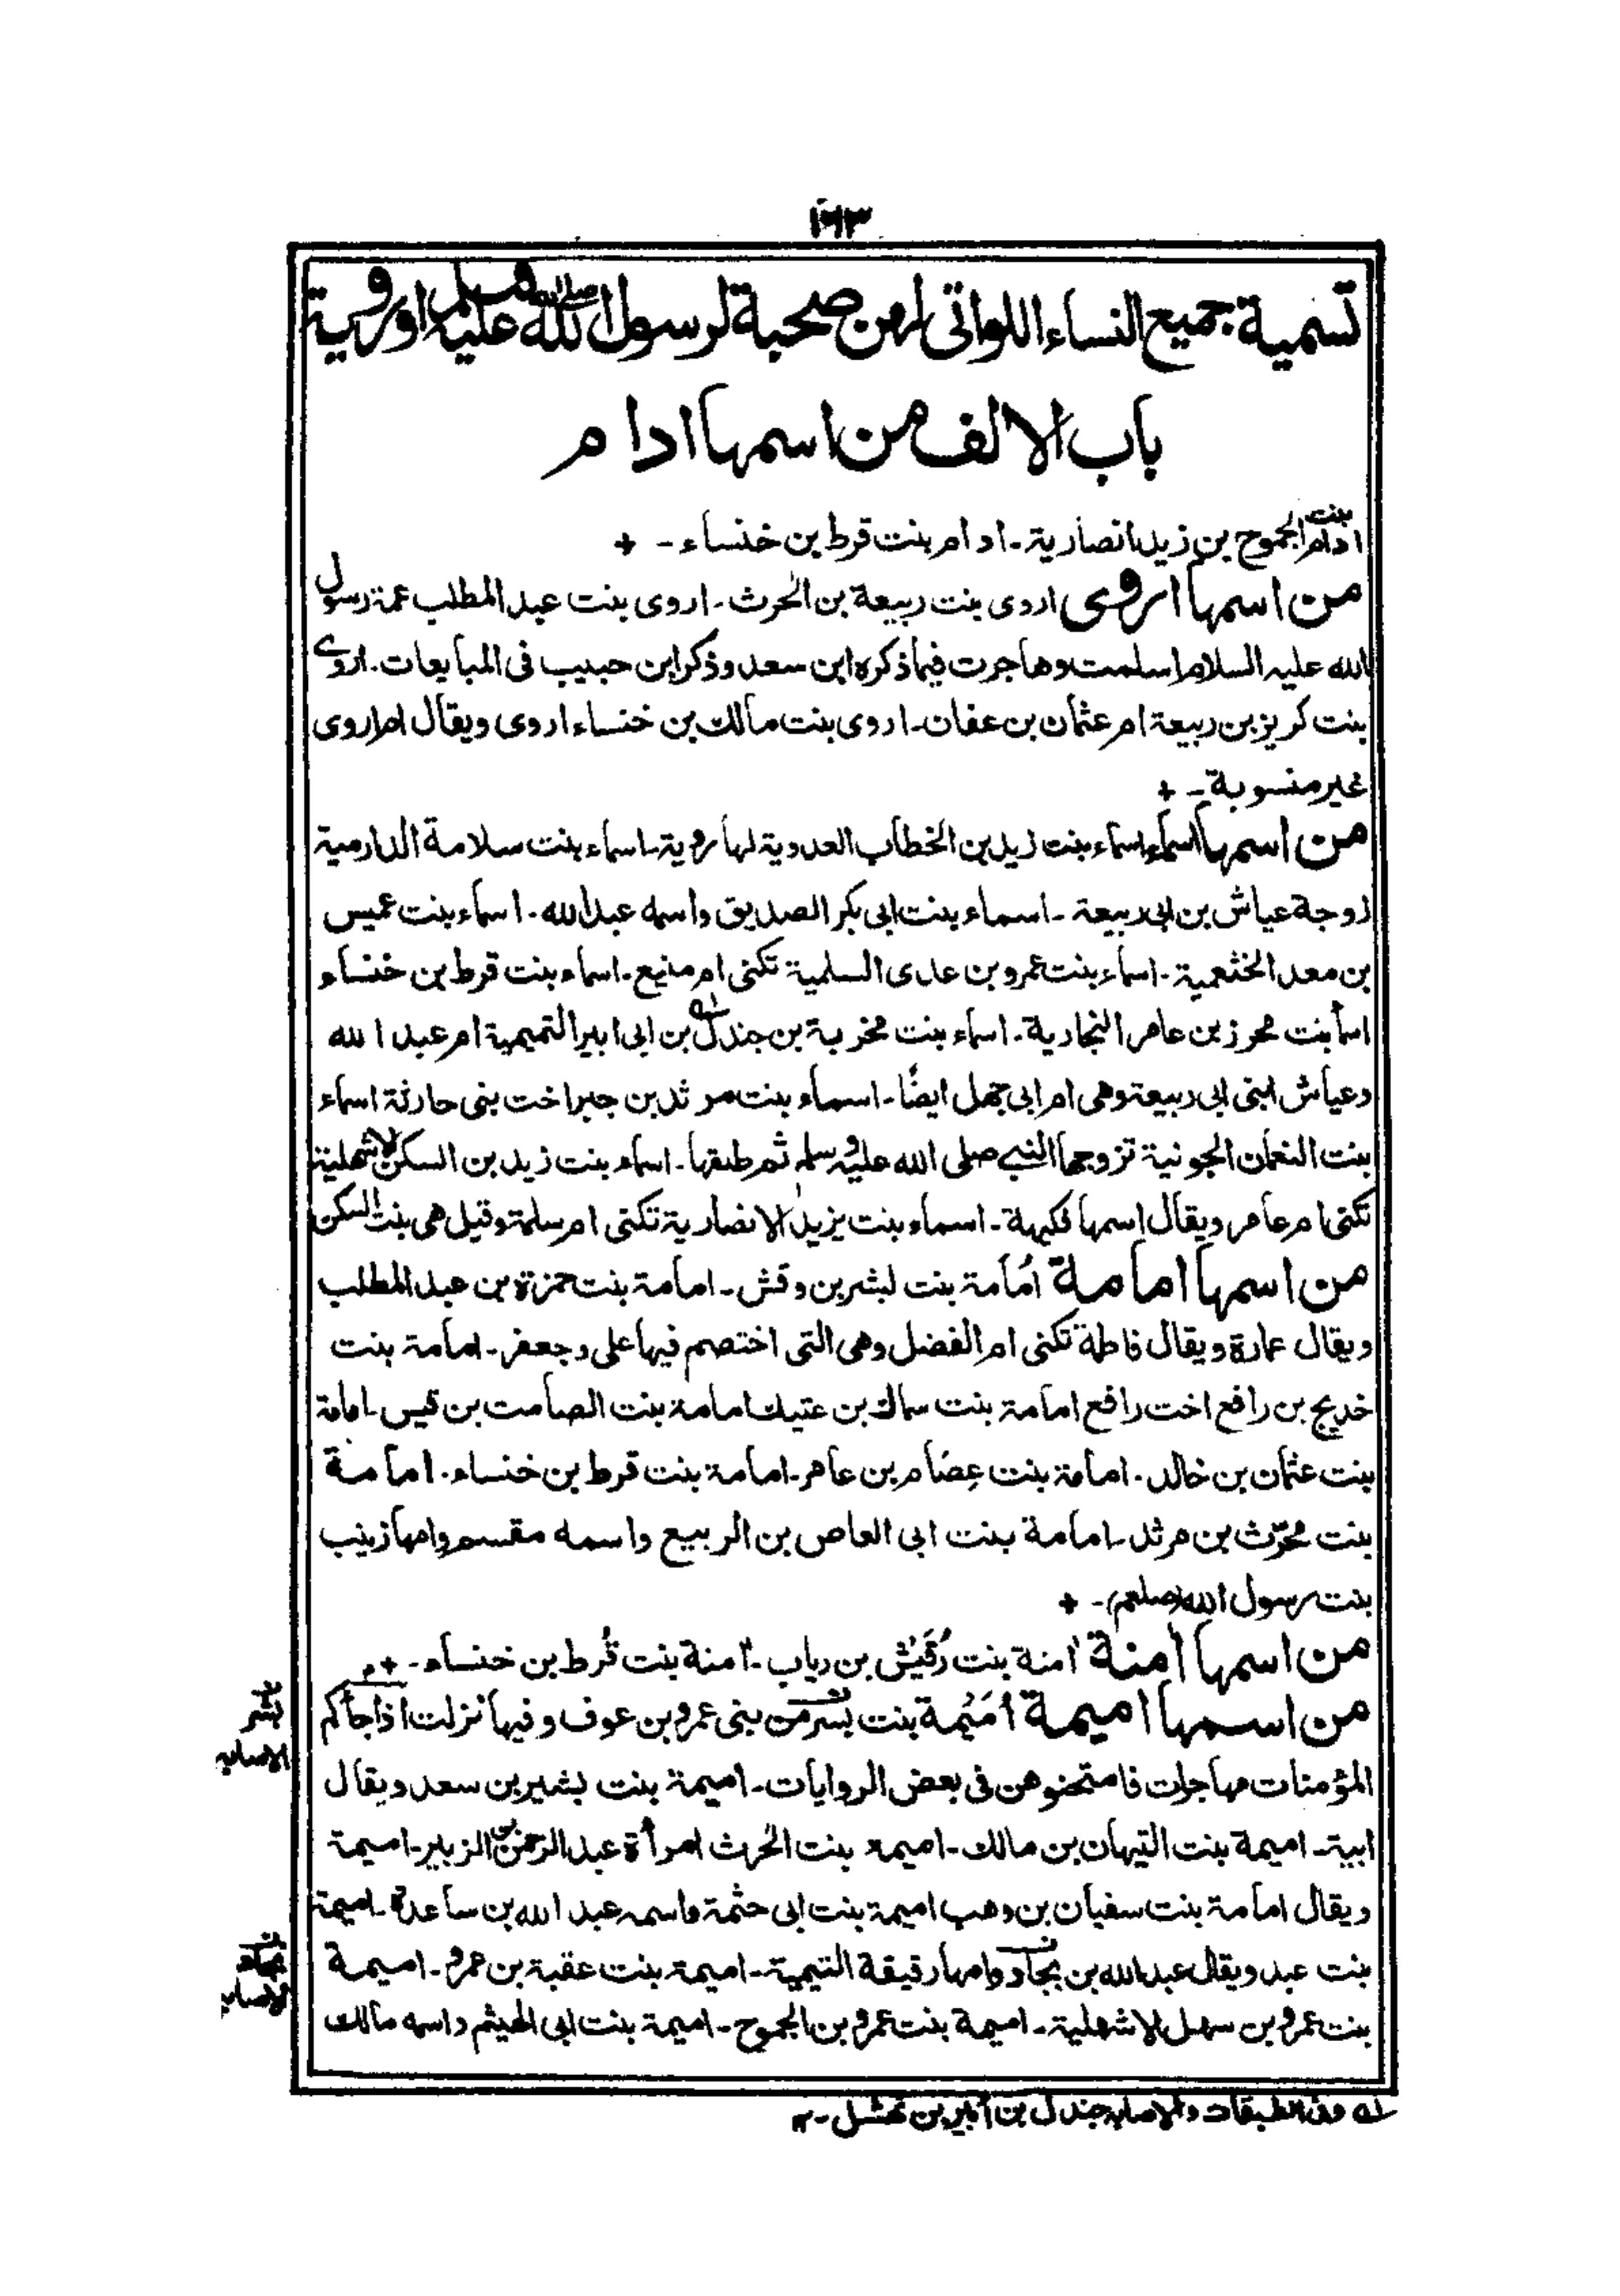 ١٦٣
تسمية جميع النساء اللواتى لهن صحبة لرسول الله صلى الله عليه وسلم او رؤية
باب الالف من اسمها ادام
ادام بنت الجموح بن زيد انصارية - ادام بنت قرط بن خنساء - +
من اسمها اروى اروى بنت ربيعة بن الحرث - اروى بنت عبد المطلب عمة رسول
الله عليه السلام اسلمت وهاجرت فيما ذكره ابن سعد وذكر ابن حبيب فى المبايعات - اروى
بنت كريز بن ربيعة ام عثمان بن عفان - اروى بنت مالك بن خنساء اروى ويقال ام اروى
غير منسوبة - +
من اسمها اسماء اسماء بنت زيد بن الخطاب العدوية لها رؤية - اسماء بنت سلامة الدارمية
زوجة عياش بن ابى ربيعة - اسماء بنت ابى بكر الصديق واسمه عبد الله - اسماء بنت عميس
بن معد الخثعمية - اسماء بنت عمرو بن عدى السلمية تكنى ام منيع - اسماء بنت قرط بن خنساء
اسما بنت محرز بن عامر النجارية - اسماء بنت مخربة بن جندل له بن ابى ابير التميمية ام عبد الله
وعياش ابنى ابى ربيعة وهى ام ابى جهل ايضًا - اسماء بنت مرثد بن جبر اخت بنى حارثة اسماء
بنت النعمان الجونية تزوجها النبى صلى الله عليه وسلم ثم طلقها - اسماء بنت زيد بن السكن الاشهلية
تكنى ام عامر ويقال اسمها فكيهة - اسماء بنت يزيد الانصارية تكنى ام سلمة وقيل هى بنت السكن
من اسمها امامة اُمَامة بنت لبشر بن وقش - امامة بنت حمزة بن عبد المطلب
ويقال عمارة ويقال فاطمة تكنى ام الفضل وهى التى اختصم فيها على وجعفر - امامة بنت
خديج بن رافع اخت رافع امامة بنت سماك بن عتيك امامة بنت الصامت بن قيس - امامة
بنت عثمان بن خالد - امامة بنت عِصَام بن عامر - امامة بنت قرط بن خنساء - امامة
بنت محرّث بن مرثد - امامة بنت ابى العاص بن الربيع واسمه مقسم وامها زينب
بنت رسول الله (صلعم) - +
من اسمها آمنة آمنة بنت رُقَيْش بن رياب - آمنة بنت قُرط بن خنساء - +
من اسمها اميمة اُمَيْمة بنت بسر من بنى عمرو بن عوف وفيها نزلت اذا جاكم
المؤمنات مهاجرات فامتحنوهن فى بعض الروايات - اميمة بنت بشير بن سعد ويقال
ابية - اميمة بنت التيهان بن مالك - اميمة بنت الحرث امرأة عبد الرحمن بن الزبير - اميمة
ويقال امامة بنت سفيان بن وهب اميمة بنت ابى حثمة واسمه عبد الله بن ساعدة - اميمة
بنت عبد ويقال عبد الله بن بجاد وامها رقيقة التيمية - اميمة بنت عقبة بن عمرو - اميمة
بنت عمرو بن سهل الاشهلية - اميمة بنت عمرو بن الجموح - اميمة بنت ابى الهيثم واسمه مالك
بشر
الاصابه
الاصابه
له وفى الطبقات والاصابه جندل بن أبير بن نهشل - ١٢